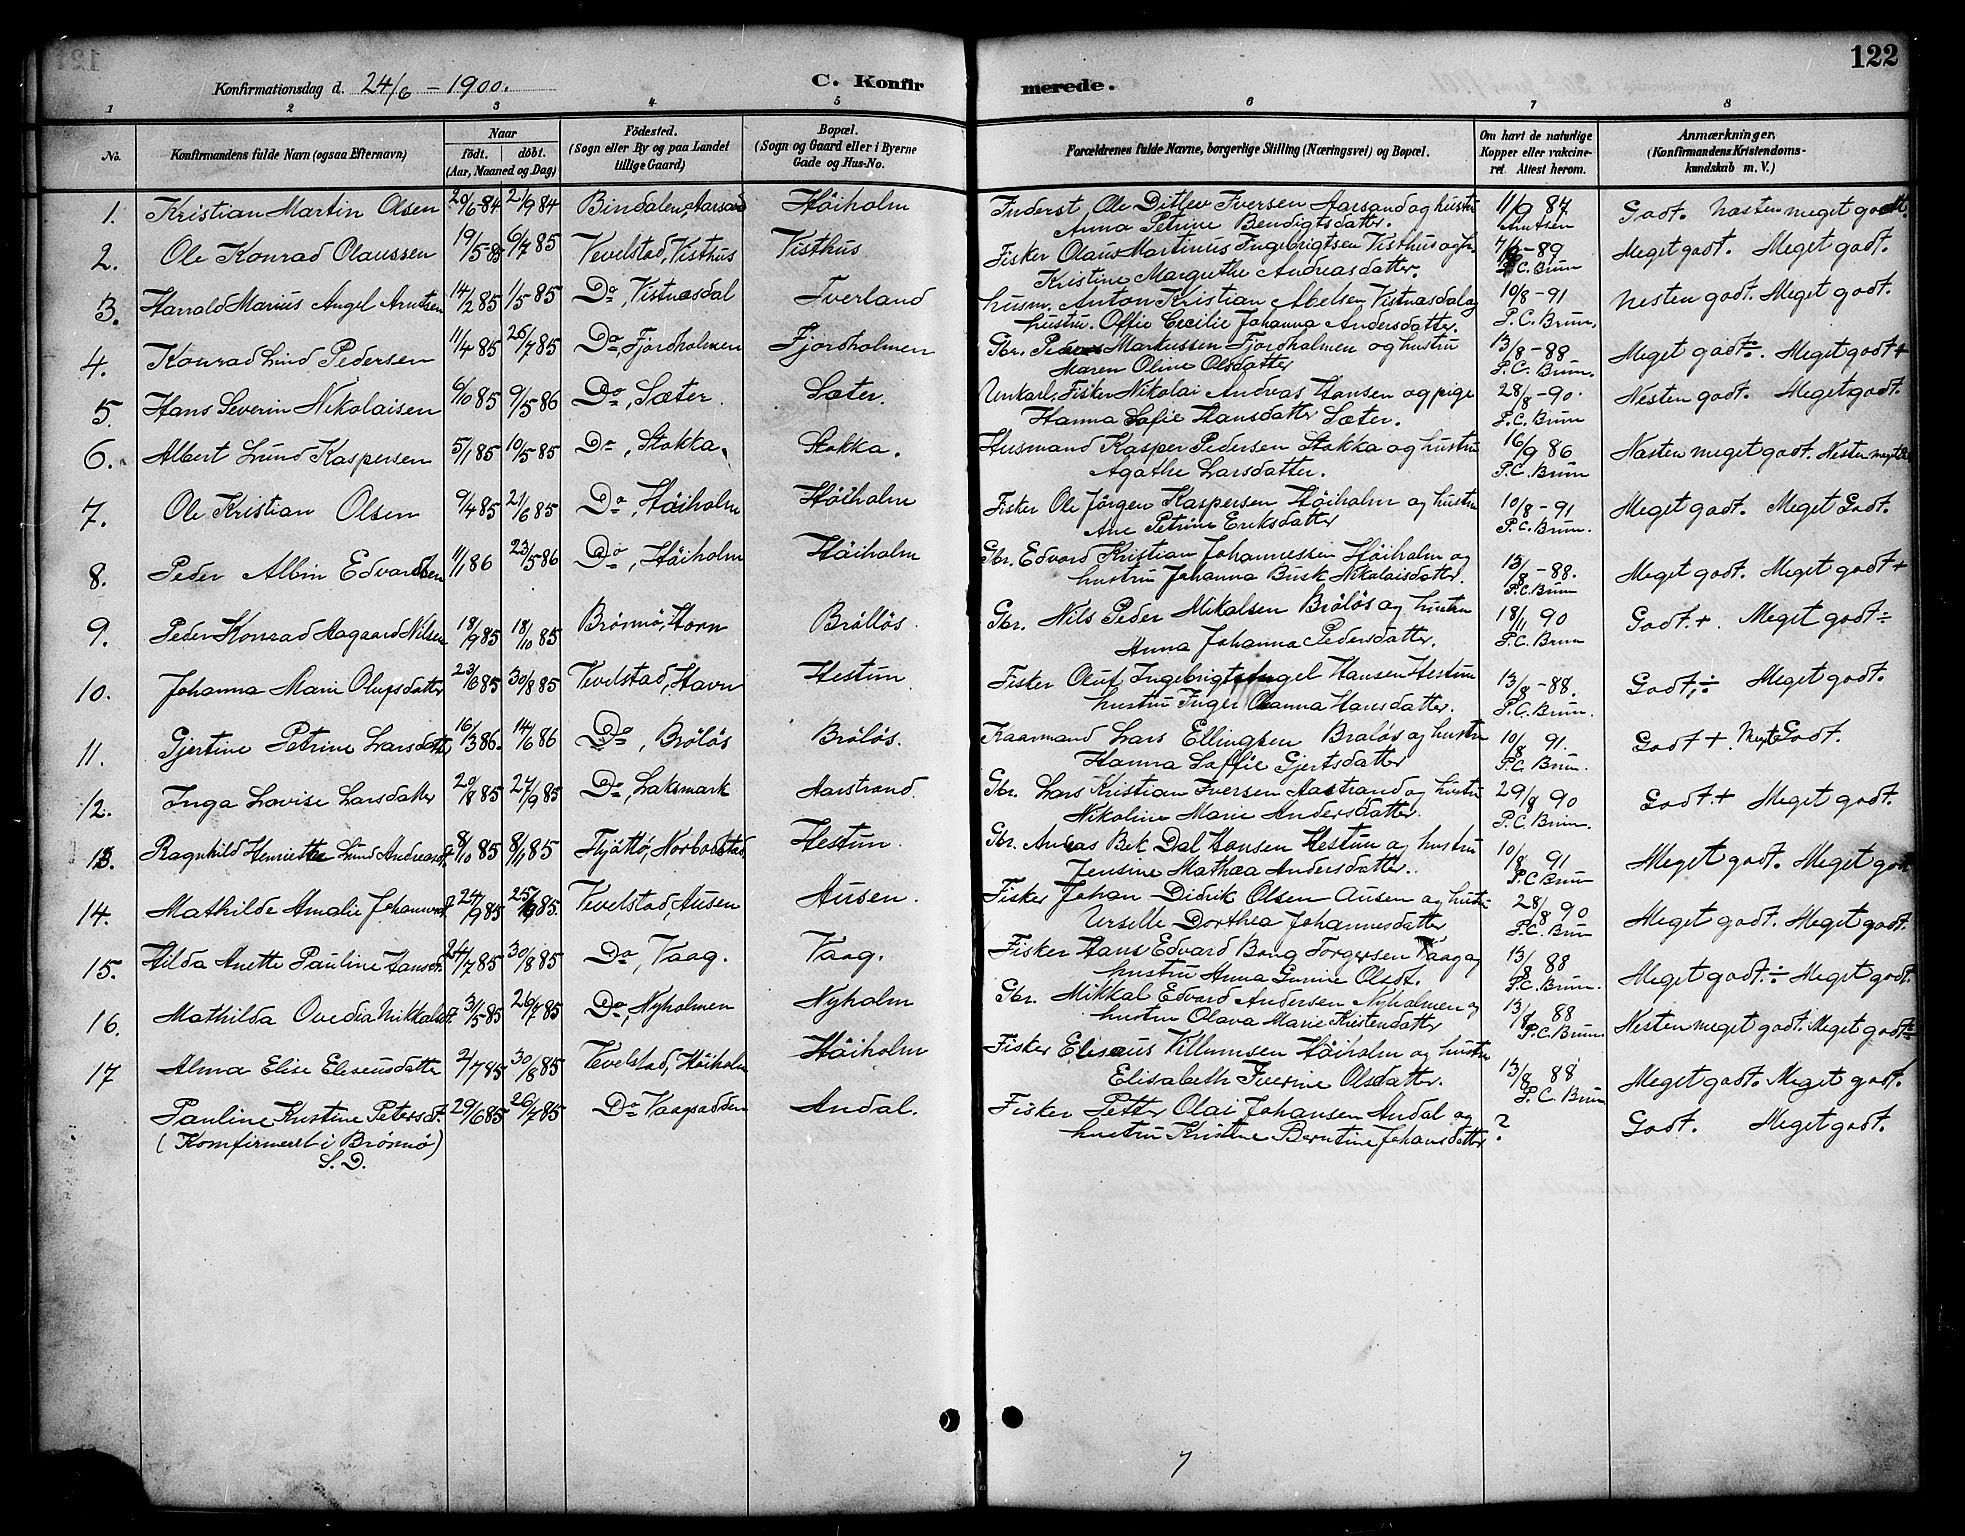 122
Konfirmationsdag d. 24/6 - 1900.
C. Konfirmerede.
1 2 3 4 5 6 7 8
No.
Konfirmandens fulde Navn (ogsaa Efternavn)
Naar
födt. döbt.
(Aar, Maaned og Dag)
Födested.
(Sogn eller By og paa Landet
tillige Gaard)
Bopæl.
(Sogn og Gaard eller i Byerne
Gade og Hus-No.
Forældrenes fulde Navne, borgerlige Stilling (Næringsvei) og Bopæl.
Om havt de naturlige
Kopper eller vakcine-
ret. Attest herom.
Anmærkninger.
(Konfirmandens Kristendoms-
kundskab m. V.)
1. Kristian Martin Olsen 20/6 84 21/9 84 Bindalen, Aarsand Höiholm Inderst Ole Ditlev Iversen Aarsand og hustru 11/9 84 Godt. Næsten meget godt.
Anna Petrine Bendigtsdatter. Knutsen
2. Ole Konrad Olaussen 19/5 85 6/7 85 Vevelstad, Visthus Visthus Fisker Olaus Martinus Ingebrigtsen Visthus og h. -89 Meget godt. Meget godt.
Kristine Margrethe Andreasdatter. P.C. Brun
3. Harrald Marius Angel Antonsen 14/2 85 1/5 85 Do, Vistnæsdal Tverland Husm. Anton Kristian Abelsen Vistnæsdal og 10/8 - 91 Nesten godt. Meget godt.
hustru. Offie Cecilie Johanna Andersdatter. P.C. Brun.
4. Konrad Lind Pedersen 11/4 85 26/7 85 Do, Fjordholmen Fjordholmen Gbr. Peder Markussen Fjordholmen og hustru 13/8 - 88 Meget godt÷. Meget godt +
Maren Oline Olsdatter P.C. Brun.
5. Hans Severin Nikolaisen 6/10 85 9/5 86 Do, Sæter. Sæter. Unkarl, Fisker Nikolai Andreas Hansen og pige 28/8 - 90. Nesten godt. Meget godt.
Hanna Sofie Hansdatter Sæter. P.C. Brun
6. Albert Lund Kaspersen 5/1 85 10/5 85 Do, Stokka. Stokka. Husmand Kasper Pedersen Stokka og hustru 16/9 86 Næsten meget godt. Nesten meget
Agathe Larsdatter. P.C. Brun
7. Ole Kristian Olsen 9/4 85 21/6 85 Do, Höiholm Höiholm Fisker Ole Jörgen Kaspersen Höiholm og hustru 10/8 - 91 Meget godt. Meget Godt.
Ane Petrine Eriksdatter P.C. Brun.
8. Peder Albin Edvardsen 11/1 86 23/5 86 Do, Höiholm Höiholm Gbr. Edvard Kristian Johannessen Höiholm og 13/8 - 88. Meget godt. Meget godt +
hustru Johanna Busk Nikolaisdatter. P.C. Brun
9. Peder Konrad Aagaard Nilsen 18/9 85 18/10 85 Brönnö, Horn Brölös. Gbr. Nils Peder Mikalsen Brölös og hustru 18/11 90 Godt. +. Meget godt÷
Anna Johanna Pedersdatter. P.C. Brun
10. Johanna Marie Olufsdatter 23/6 85 30/8 85 Vevelstad, Havn Hestun Fisker Oluf Ingebrigt Angel Hansen Hestun 13/8 - 88. Godt,÷ Meget godt.
hustru Inger Hanna Hansdatter. P.C. Brun.
11. Gjertine Petrine Larsdatter 16/3 86. 14/6 86 Do, Brölös Brölös. Kaarmand Lars Ellingsen Brölös og hustru 10/8 91. Godt +. Meget Godt.
Hanna Soffie Gjertsdatter P.C. Brun.
12. Inga Lovise Larsdatter 20/8 85 27/9 85 Do, Laksmark Aarstrand. Gbr. Lars Kristian Iversen Aastrand og hustru 29/8 90 Godt.+ Meget godt.
Nikoline Marie Andersdatter. P.C. Brun.
13. Ragnhild Henriette Lund Andreasdt. 8/10 85 8/11 85 Tjöttö, Norbodstad. Hestun. Gbr. Andreas Bek Dal Hansen Hestun og hustru 10/8 91 Meget godt. Meget godt
Jensine Mathea Andersdatter. P.C Brun
14. Mathilde Amalie Johannsdt. 24/9 85 85. Vevelstad, Ausen Ausen. Fisker Johan Didrik Olsen Ausen og hustru 28/8 90 Meget godt. Meget godt.
Urselle Dorthea Johannesdatter P.C. Brun
15. Hilda Anette Pauline Hansdt. 24/7 85 30/8 85 Do, Vaag. Vaag. Fisker Hans Edvard Bang Torgersen Vaag og 13/8 88 Meget godt÷ Meget godt.
hustru Anna Gurine Olsdt. P.C. Brun.
16. Mathilda Ovedia Mikkalsdt. 31/5 85 26/7 85 Do, Nyholmen Nyholm Gbr. Mikkal Edvard Andersen Nyholmen og 13/8 88 Nesten meget godt. Meget godt÷
hustru Olava Marie Kristensdatter P.C Brun
17 Alma Elise Eliseusdatter 2/7 85 30/8 85 Vevelstad, Höiholm Höiholm Fisker Eliseus Villumsen Höiholm og hustru 13/8 88 Meget godt. Meget godt.
Elisabeth Iverine Olsdatter. P.C Brun
Pauline Kristine Petersdt. 29/6 85 26/7 85 Do Vaagsodden Andal. Fisker Petter Olai Johansen Andal og ? Godt. Meget godt.
(Komfirmeret i Brönnö) hustru Kristine Berntine Johansdatter
S. D.
7